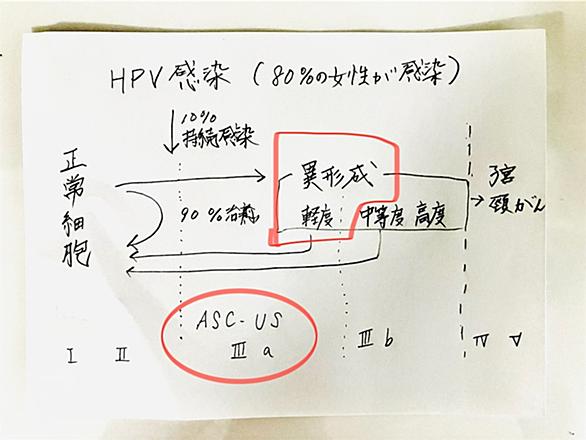 HPV感染（80%の女性が感染）
10%
持続感染
正常細胞
90%治癒
異形成
軽度 中等度 高度
子宮
頸がん
ASC-US
I II IIIa IIIb IV V